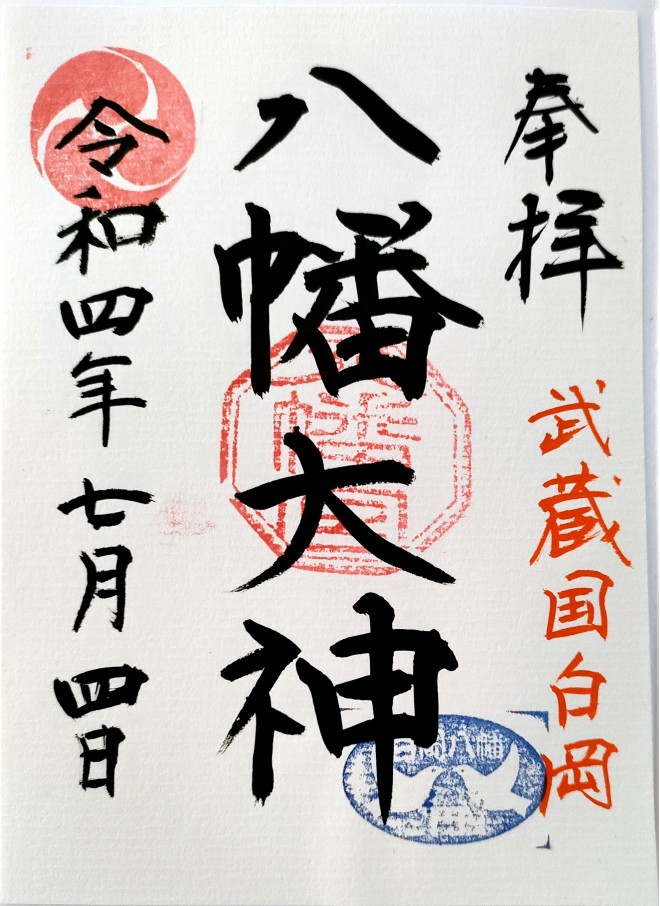 奉拝
武蔵国白岡
八幡大神
令和四年七月四日
白岡八幡